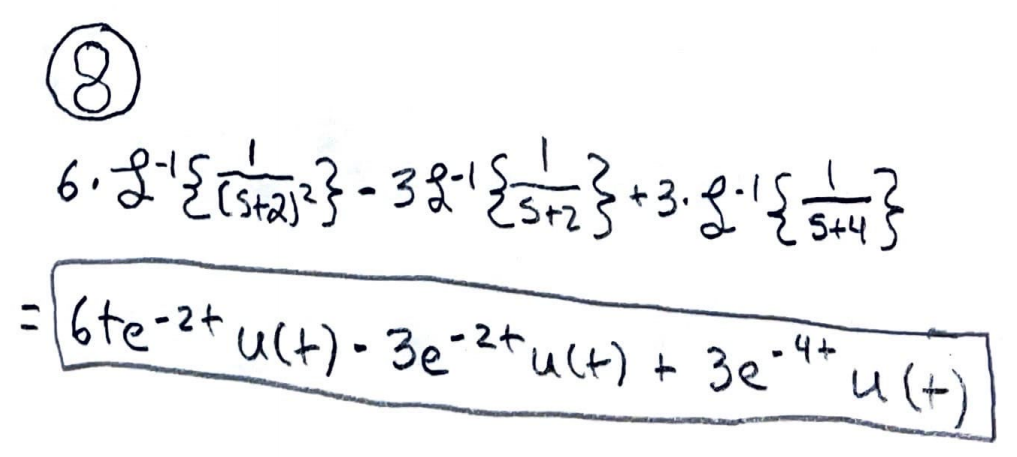 8
6·ℒ⁻¹{1/(s+2)²} - 3ℒ⁻¹{1/s+2} + 3·ℒ⁻¹{1/s+4}
= 6te⁻²ᵗ u(t) - 3e⁻²ᵗ u(t) + 3e⁻⁴ᵗ u(t)